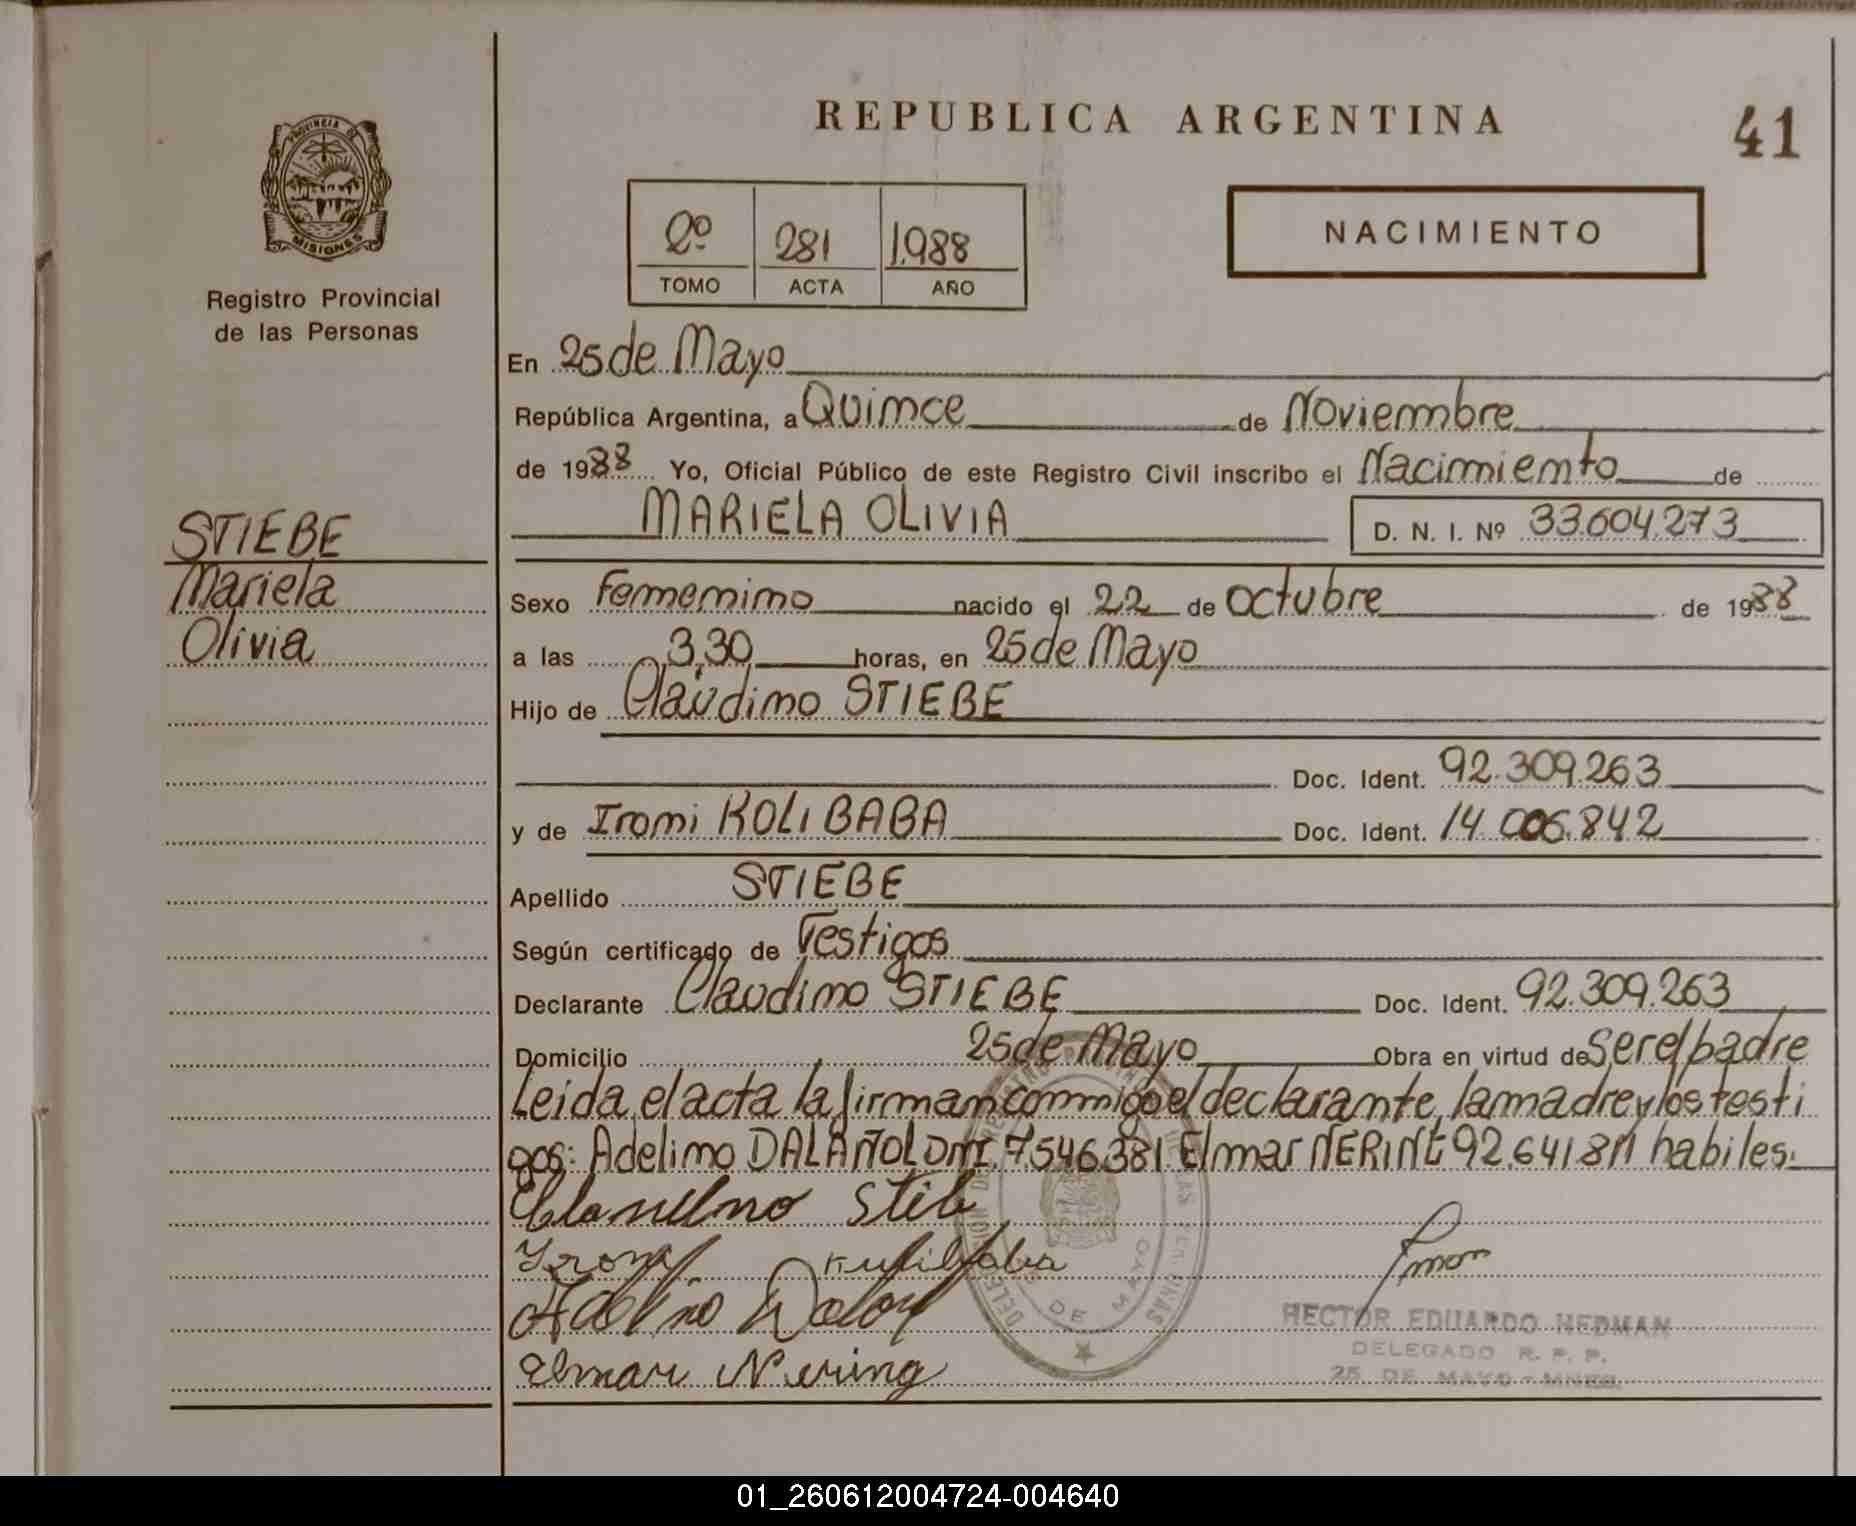 REPUBLICA ARGENTINA
41
PROVINCIA DE
MISIONES
Registro Provincial
de las Personas
2º 281 1.988
TOMO ACTA AÑO
NACIMIENTO
En 25 de Mayo
República Argentina, a Quince de Noviembre
de 1988 Yo, Oficial Público de este Registro Civil inscribo el Nacimiento de
MARIELA OLIVIA D. N. I. Nº 33.604.273
STIEBE
Mariela
Olivia
Sexo Femenino nacido el 22 de Octubre de 1988
a las 3,30 horas, en 25 de Mayo
Hijo de Claudino STIEBE
Doc. Ident. 92.309.263
y de Ironi KOLIBABA Doc. Ident. 14.006.842
Apellido STIEBE
Según certificado de Testigos
Declarante Claudino STIEBE Doc. Ident. 92.309.263
Domicilio 25 de Mayo Obra en virtud de Ser el padre
Leida el acta la firman conmigo el declarante, la madre y los testi
gos: Adelino 7546381 Elmar 92.641811 habiles.
Elmar Nering
DE MAYO
HECTOR EDUARDO HEDMAN
DELEGADO R. P. P.
25 DE MAYO - MNES.
01_260612004724-004640